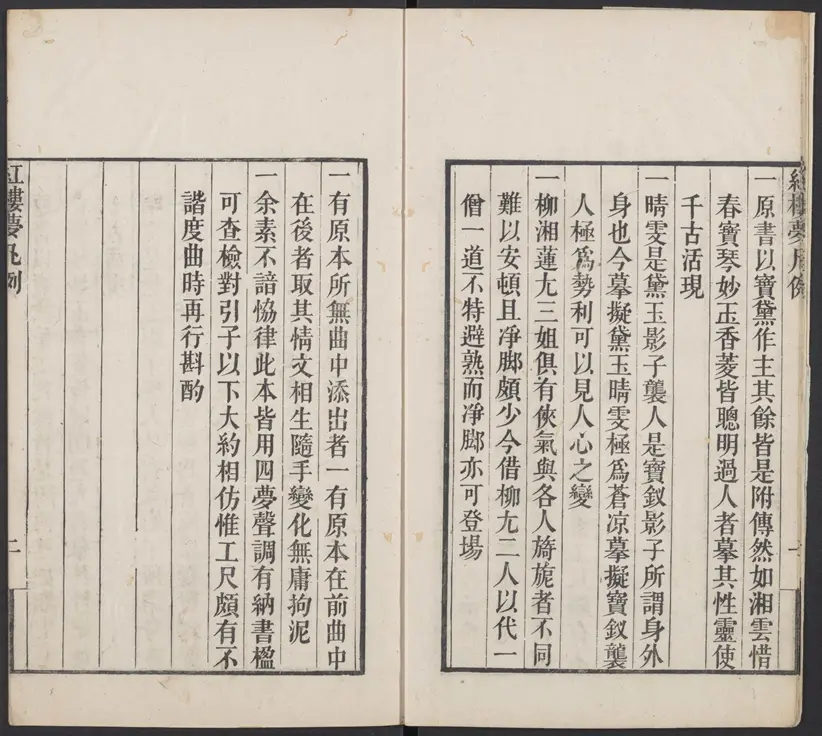 紅樓夢凡例
一原書以寶黛作主其餘皆是附傳然如湘雲惜
春寶琴妙玉香菱皆聰明過人者摹其性靈使
千古活現
一晴雯是黛玉影子襲人是寶釵影子所謂身外
身也今摹擬黛玉晴雯極爲蒼凉摹擬寶釵襲
人極爲勢利可以見人心之變
一柳湘蓮尤三姐俱有俠氣與各人旖旎者不同
難以安頓且净脚頗少今借柳尤二人以代一
僧一道不特避熟而净脚亦可登場
一有原本所無曲中添出者一有原本在前曲中
在後者取其情文相生隨手變化無庸拘泥
一余素不諳恊律此本皆用四夢聲調有納書楹
可查檢對引子以下大約相仿惟工尺頗有不
諧度曲時再行斟酌
紅樓夢凡例
二